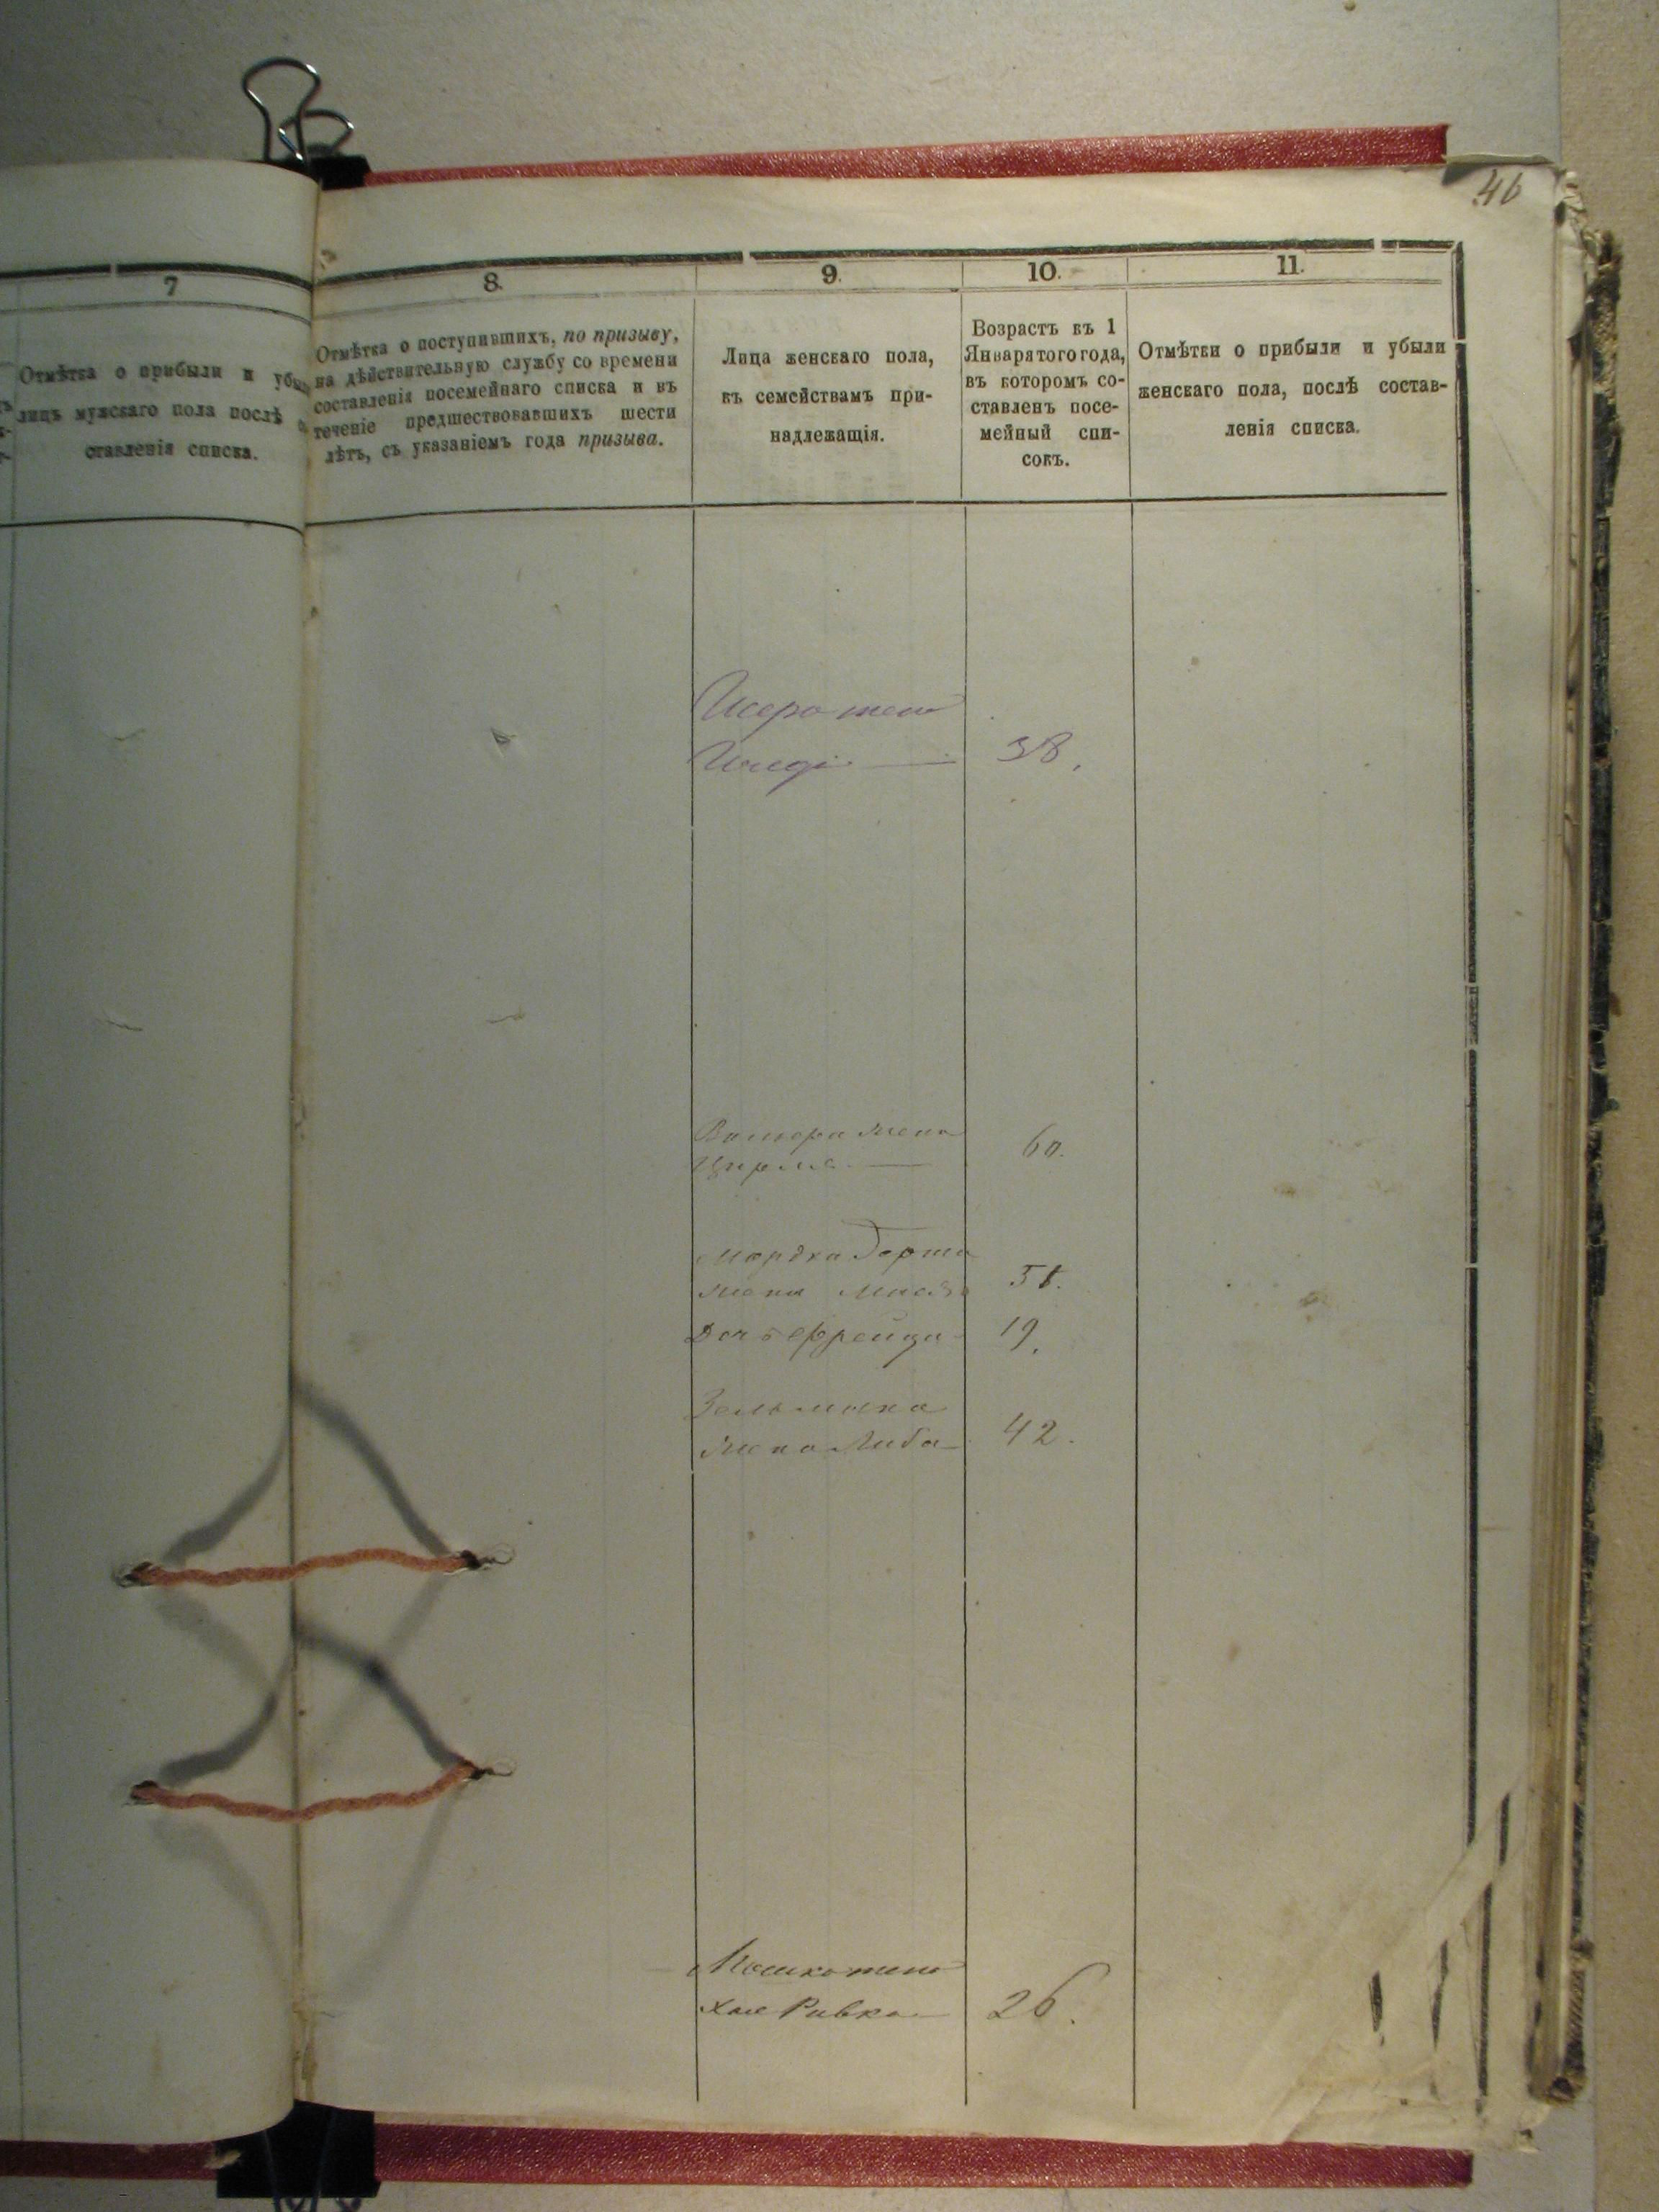 46
7
Отмѣтка о прибыли и убы
лицъ мужскаго пола послѣ
ставленія списка.
8.
Отмѣтка о поступившихъ, по призыву,
на дѣйствительную службу со времени
составленія посемейнаго списка и въ
теченіе предшествовавшихъ шести
лѣтъ, съ указаніемъ года призыва.
9.
Лица женскаго пола,
къ семействамъ при-
надлежащія.
10.
Возрастъ къ 1
Января того года,
въ которомъ со-
ставленъ посе-
мейный спи-
сокъ.
11.
Отмѣтки о прибыли и убыли
женскаго пола, послѣ состав-
ленія списка.
жена
38.
жена
60.
Мордка
жена
Дочь Фрейда 19.
Зельмана
жена Либа 42.
Мошка жена
Хае Ривка 26.